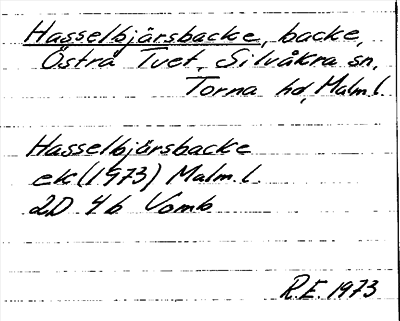 Hasselbjärsbacke, backe,
Östra Tvet, Silvåkra sn,
Torna hd, Malm.l.
Hasselbjärsbacke
ek (1973) Malm.l.
2D 4b Vomb
R.E. 1973